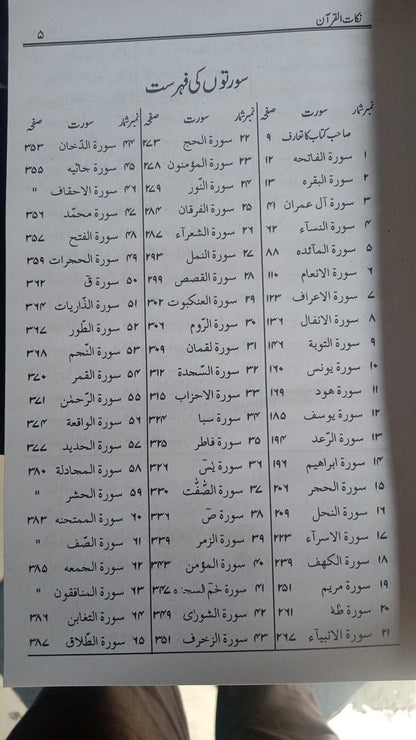 نکات القرآن
۵
سورتوں کی فہرست
نمبر شمار سورت صفحہ
صاحب کتاب کا تعارف ۹
۱ سورۃ الفاتحہ ۱۲
۲ سورۃ البقرہ ۱۳
۳ سورۃ آل عمران ۴۱
۴ سورۃ النسآء ۶۲
۵ سورۃ المآئدہ ۸۸
۶ سورۃ الانعام ۱۱۰
۷ سورۃ الاعراف ۱۲۳
۸ سورۃ الانفال ۱۳۶
۹ سورۃ التوبۃ ۱۴۶
۱۰ سورۃ یونس ۱۶۰
۱۱ سورۃ ھود ۱۶۹
۱۲ سورۃ یوسف ۱۸۵
۱۳ سورۃ الرّعد ۱۹۴
۱۴ سورۃ ابراھیم ۱۹۶
۱۵ سورۃ الحجر ۲۰۶
۱۶ سورۃ النحل ۲۰۹
۱۷ سورۃ الاسرآء ۲۲۳
۱۸ سورۃ الکھف ۲۳۹
۱۹ سورۃ مریم ۲۵۱
۲۰ سورۃ طٰہٰ ۲۶۱
۲۱ سورۃ الانبیآء ۲۶۷
نمبر شمار سورت صفحہ
۲۲ سورۃ الحج ۲۷۳
۲۳ سورۃ المؤمنون ۲۷۸
۲۴ سورۃ النّور ۲۷۹
۲۵ سورۃ الفرقان ۲۸۴
۲۶ سورۃ الشعرآء ۲۸۷
۲۷ سورۃ النمل ۲۹۳
۲۸ سورۃ القصص ۲۹۹
۲۹ سورۃ العنکبوت ۳۰۲
۳۰ سورۃ الرّوم ۳۰۶
۳۱ سورۃ لقمان ۳۰۹
۳۲ سورۃ السّجدۃ ۳۱۲
۳۳ سورۃ الاحزاب ۳۱۵
۳۴ سورۃ سبا ۳۲۴
۳۵ سورۃ فاطر ۳۲۵
۳۶ سورۃ یٰسٓ ۳۲۶
۳۷ سورۃ الصّٰفّٰت ۳۳۰
۳۸ سورۃ صٓ ۳۳۶
۳۹ سورۃ الزمر ۳۳۹
۴۰ سورۃ المؤمن ۳۴۳
۴۱ سورۃ حٰمٓ السجدہ ۳۴۷
۴۲ سورۃ الشورٰی ۳۴۹
۴۳ سورۃ الزخرف ۳۵۱
نمبر شمار سورت صفحہ
۴۴ سورۃ الدّخان ۳۵۳
۴۵ سورۃ جاثیہ ۳۵۵
۴۶ سورۃ الاحقاف "
۴۷ سورۃ محمّد ۳۵۶
۴۸ سورۃ الفتح ۳۵۷
۴۹ سورۃ الحجرات ۳۵۹
۵۰ سورۃ قٓ ۳۶۲
۵۱ سورۃ الذّاریات ۳۶۴
۵۲ سورۃ الطّور ۳۶۷
۵۳ سورۃ النّجم ۳۶۸
۵۴ سورۃ القمر ۳۷۰
۵۵ سورۃ الرّحمٰن ۳۷۱
۵۶ سورۃ الواقعۃ ۳۷۴
۵۷ سورۃ الحدید ۳۷۷
۵۸ سورۃ المجادلۃ ۳۸۰
۵۹ سورۃ الحشر "
۶۰ سورۃ الممتحنہ ۳۸۳
۶۱ سورۃ الصّف "
۶۲ سورۃ الجمعہ ۳۸۵
۶۳ سورۃ المنافقون "
۶۴ سورۃ التغابن ۳۸۶
۶۵ سورۃ الطّلاق ۳۸۷